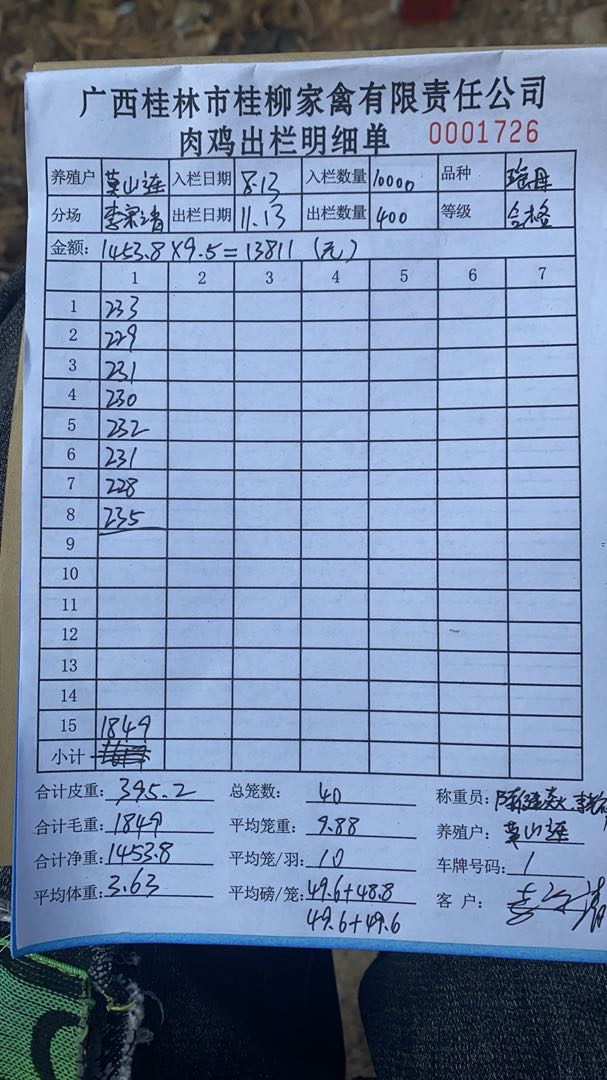 广西桂林市桂柳家禽有限责任公司
肉鸡出栏明细单 0001726
养殖户 莫山连 入栏日期 8.13 入栏数量 10000 品种 瑶母
分场 出栏日期 11.13 出栏数量 400 等级 合格
金额: 1453.8×9.5=13811 (元)
1 2 3 4 5 6 7
1 233
2 229
3 231
4 230
5 232
6 231
7 228
8 235
9
10
11
12
13
14
15 1849
小计
合计皮重: 395.2 总笼数: 40 称重员:
合计毛重: 1849 平均笼重: 9.88 养殖户: 莫山连
合计净重: 1453.8 平均笼/羽: 10 车牌号码: 1
平均体重: 3.63 平均磅/笼: 49.6+48.8 客户:
49.6+49.6